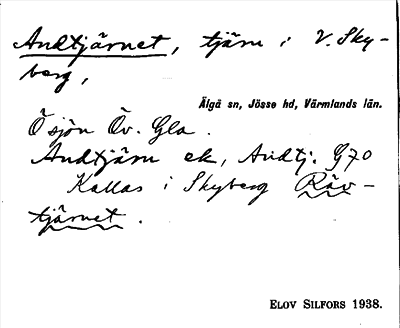 Andtjärnet, tjärn i V. Sky-
berg,
Älgå sn, Jösse hd, Värmlands län.
Ö sjön Öv. Gla.
Andtjärn ek, Andtj. G70
Kallas i Skyberg Räv-
tjärnet.
ELOV SILFORS 1938.